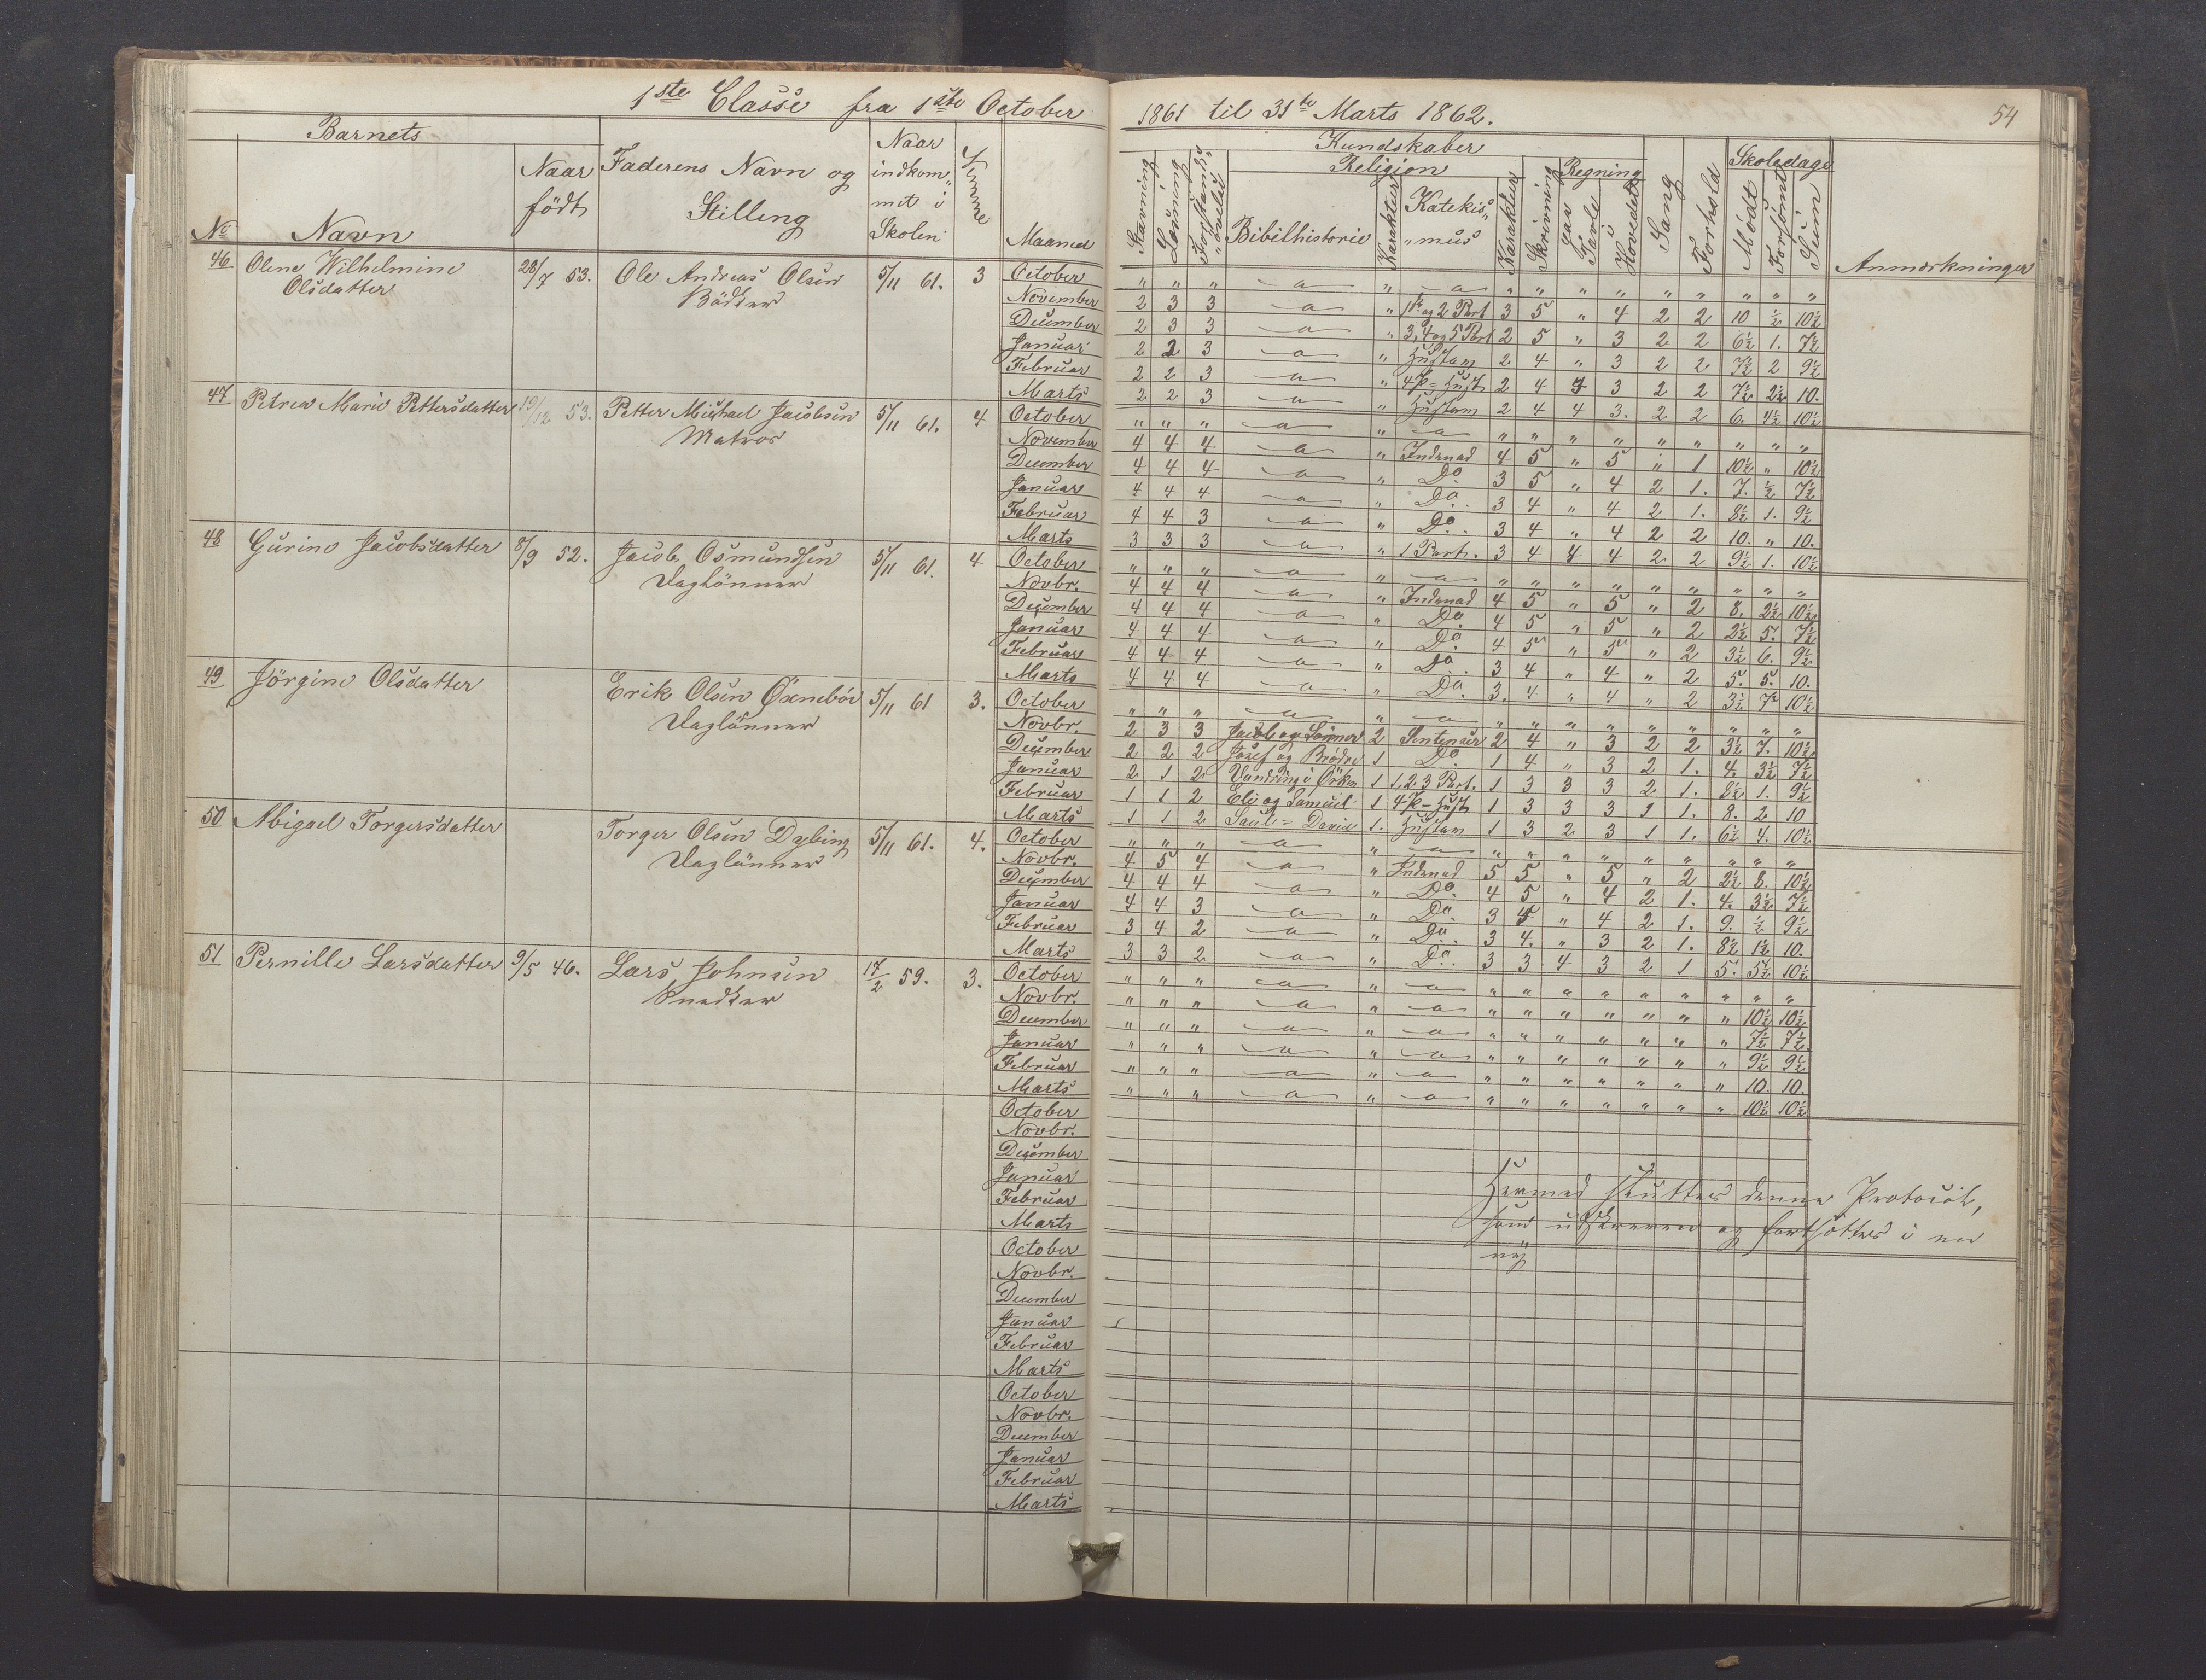 1ste Classe fra 1ste October 1861 til 31te Marts 1862. 54
Barnets
No Navn Naar födt Faderens Navn og Stilling Naar indkommet i Skolen Evne Maaned
Kundskaber
Religion Regning Skoledage
Stavning Læsning Forstands„övelse Bibelhistorie Karakter Katekis„mus Karakter Skrivning paa Tavle i Hovedet Sang Forhold Mödt Forsömt Sum Anmærkninger
46 Olene Wilhelmine Olsdatter 28/7 53. Ole Andreas Olsen Bödker 5/11 61. 3
October „ „ „ „ „ „ „ „ „ „ „ „ „
November 2 3 3 „ 1ste og 2 Part 3 5 „ 4 2 2 10 ½ 10½
December 2 3 3 „ 3, 4 og 5 Part 2 5 „ 3 2 2 6½ 1. 7½
Januar 2 2 3 „ 2 4 „ 3 2 2 7½ 2 9½
Februar 2 2 3 „ 2 4 3 2 2 7½ 2½ 10.
Marts 2 2 3 „ 2 4 4 3. 2 2 6. 4½ 10½
47 Petrea Marie Pettersdatter 19/12 53. Petter Michael Jacobsen Matros 5/11 61. 4
October „ „ „ „ „ „ „ „ „ „ „ „ „
November 4 4 4 „ Indenad 4 5 „ 5 „ 1 10½ „ 10½
December 4 4 4 „ Do. 3 5 „ 4 2 1. 7. ½ 7½
Januar 4 4 4 „ Do. 3 4 „ 4 2 1. 8½ 1. 9½
Februar 4 4 3 „ Do. 3 4 „ 4 2 2 10. „ 10.
Marts 3 3 3 „ 1 Part. 3 4 4 4 2 2 9½ 1. 10½
48 Gurine Jacobsdatter 8/9 52. Jacob Osmundsen Daglönner 5/11 61. 4
October „ „ „ „ „ „ „ „ „ „ „ „ „
Novbr. 4 4 4 „ Indenad 4 5 „ 5 „ 2 8. 2½ 10½
December 4 4 4 „ Do. 4 5 „ 5 „ 2 2½ 5. 7½
Januar 4 4 4 „ Do. 4 5 „ 5 „ 2 3½ 6. 9½
Februar 4 4 4 „ Do. 3 4 „ 4 „ 2 5. 5. 10.
Marts 4 4 4 „ Do. 3. 4 „ 4 „ 2 3½ 7. 10½
49 Jörgine Olsdatter Erik Olsen Öxneböe Daglönner 5/11 61 3.
October „ „ „ „ „ „ „ „ „ „ „ „ „
Novbr. 2 3 3 Jacob og Sönner 2 Sentenser 2 4 „ 3 2 2 3½ 7. 10½
December 2 2 2 Josef og Brödre 1 Do. 1 4 „ 3 2 1. 4. 3½ 7½
Januar 2 1 2 Vandring i Örken 1 1, 2, 3 Part. 1 3 3 3 2 1. 8½ 1. 9½
Februar 1 1 2 Eli og Samuel 1 1 3 3 3 1 1. 8. 2 10
Marts 1 1 2 Saul = David 1. 1 3 2 3 1 1. 6½ 4. 10½
50 Abigael Torgersdatter Torger Olsen Dybing Daglönner 5/11 61. 4.
October „ „ „ „ „ „ „ „ „ „ „ „ „
Novbr. 4 5 4 „ Indenad 5 5 „ 5 „ 2 2½ 8. 10½
December 4 4 4 „ Do. 4 5 „ 4 2 1. 4. 3½ 7½
Januar 4 4 3 „ Do. 3 5 „ 4 2 1. 9. ½ 9½
Februar 3 4 2 „ Do. 3 4. „ 3 2 1. 8½ 1½ 10.
Marts 3 3 2 „ Do. 3 3 4 3 2 1 5. 5½ 10½
51 Pernille Larsdatter 9/5 46. Lars Johnsen Snedker 17/2 59. 3.
October „ „ „ „ „ „ „ „ „ „ „ „ „
Novbr. „ „ „ „ „ „ „ „ „ „ „ 10½ 10½
December „ „ „ „ „ „ „ „ „ „ „ 7½ 7½
Januar „ „ „ „ „ „ „ „ „ „ „ 9½ 9½
Februar „ „ „ „ „ „ „ „ „ „ „ 10. 10.
Marts „ „ „ „ „ „ „ „ „ „ „ 10½ 10½
October
Novbr.
December
Januar
Februar
Marts
Hermed sluttes denne Protocol,
som udskreven og fortsættes i en
ny
October
Novbr.
December
Januar
Februar
Marts
October
Novbr.
December
Januar
Februar
Marts